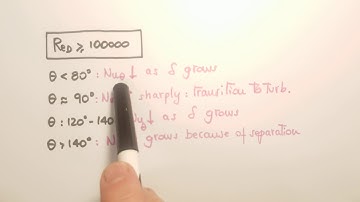 Re_D ⩾ 100000
θ < 80°: Nu_θ ↓ as δ grows
θ ≈ 90°: sharply: transition to turb.
θ: 120° - 140 u_θ ↓ as δ grows
θ > 140°: grows because of separation